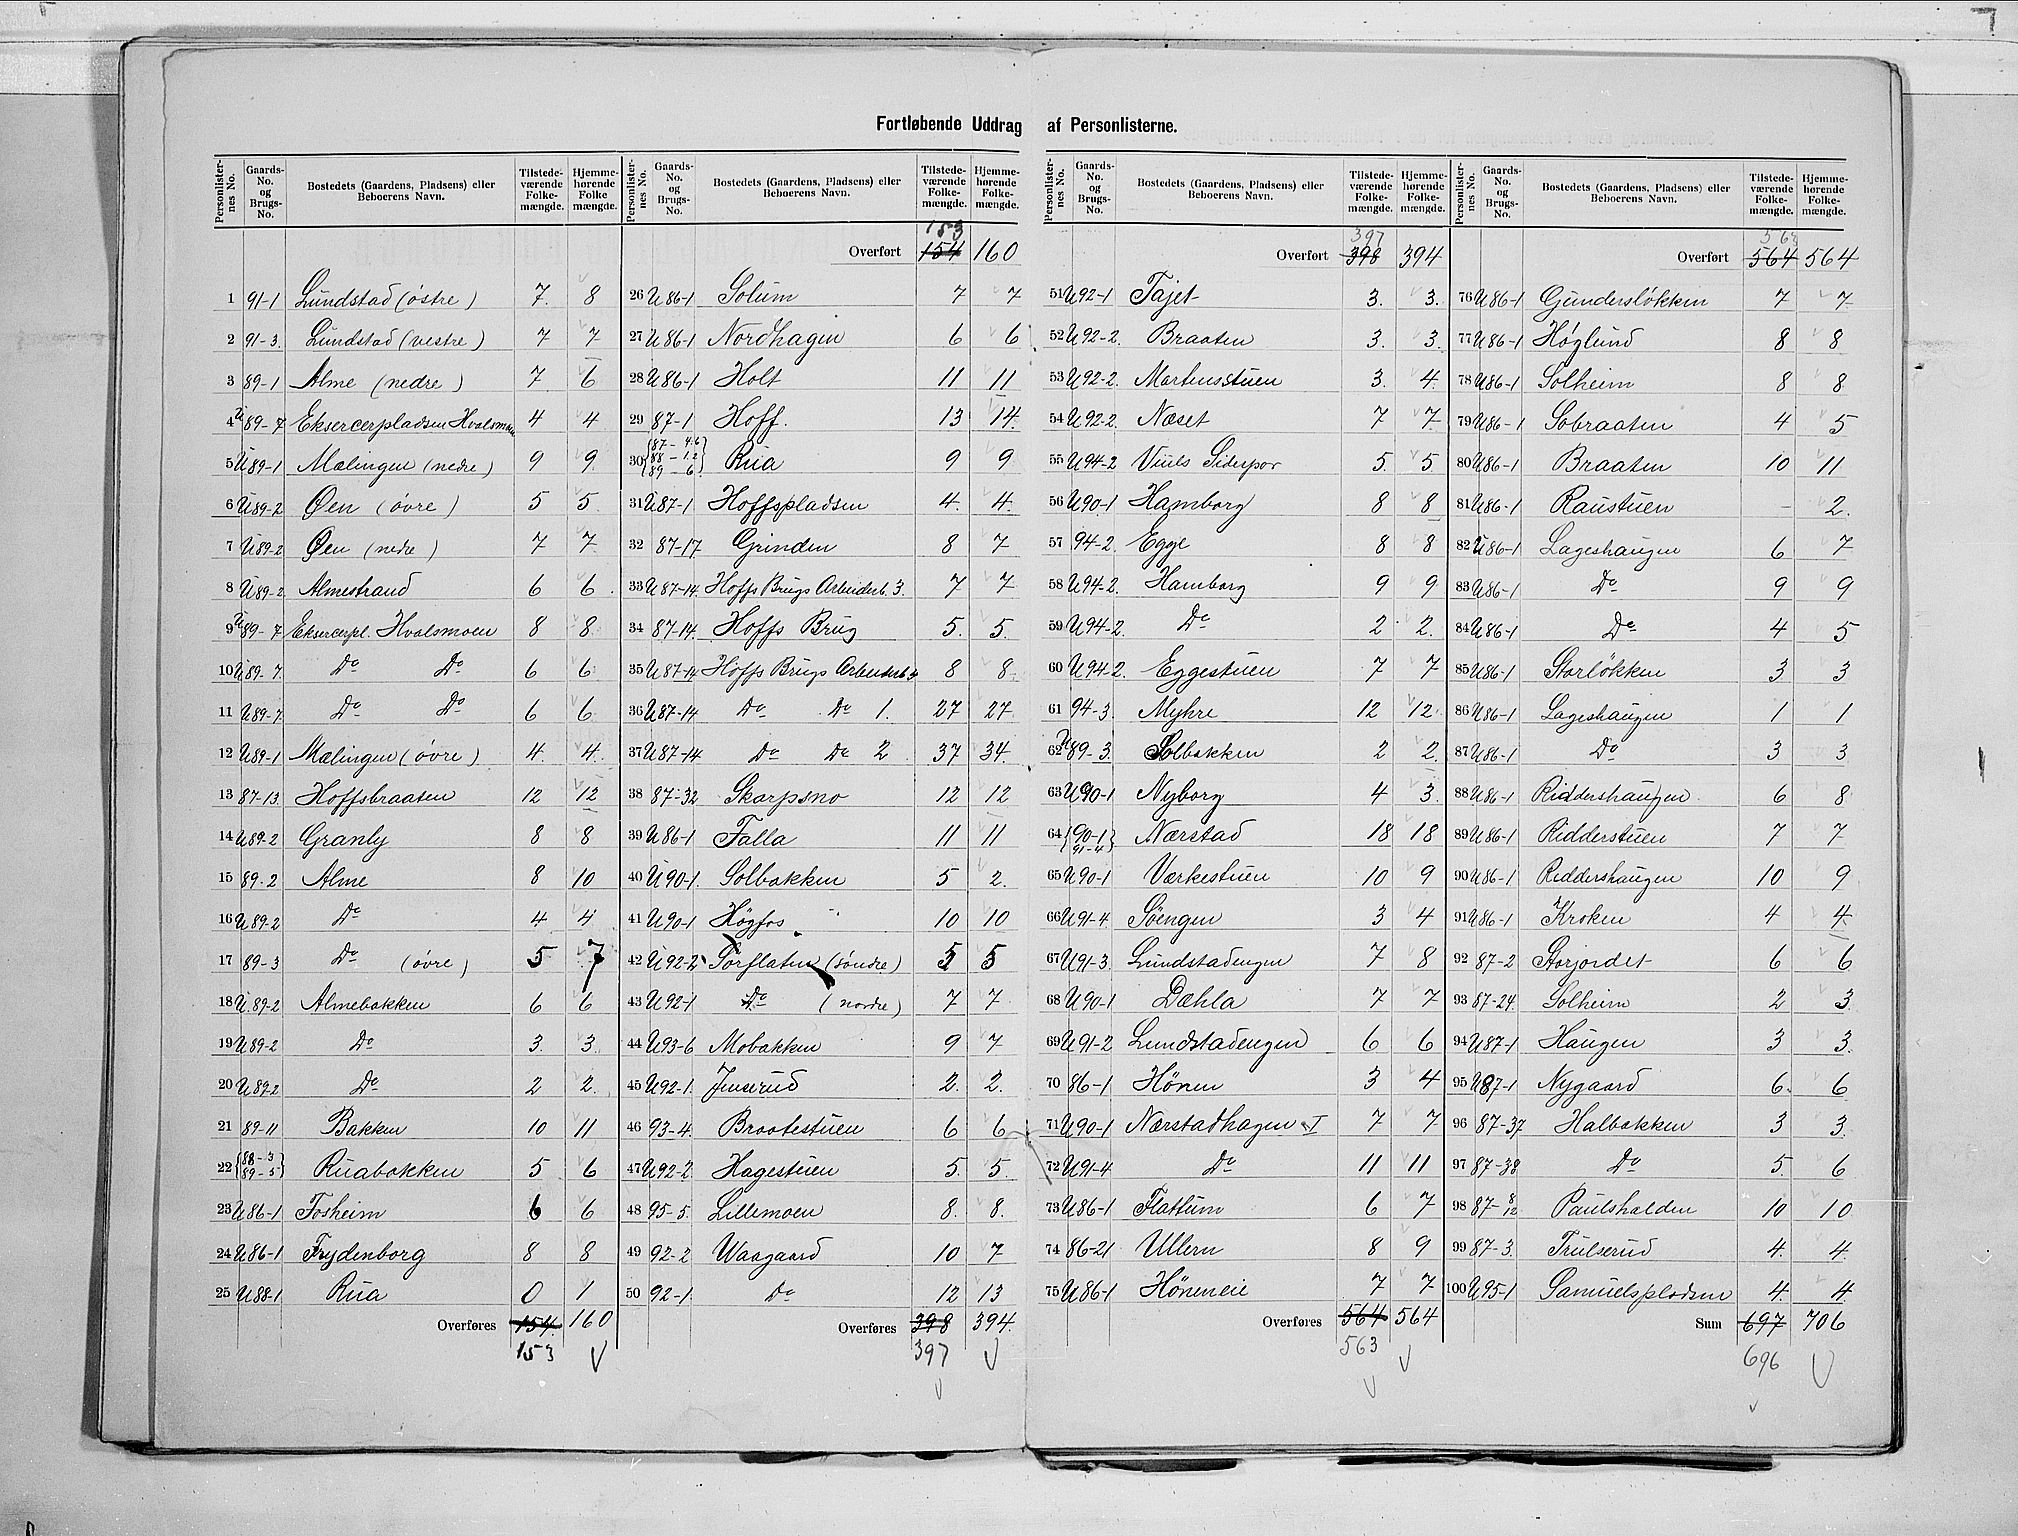 Fortløbende Uddrag af Personlisterne.
Personlisternes No. Gaards-No. og Brugs-No. Bostedets (Gaardens, Pladsens) eller Beboerens Navn. Tilstedeværende Folkemængde. Hjemmehørende Folkemængde.
1 91-1 Lundstad (östre) 7 8
2 91-3 Lundstad (vestre) 7 7
3 89-1 Alme (nedre) 7 6
4 U 89-7 Eksercerpladsen Hvalsmoen 4 4
5 U 89-1 Mælingen (nedre) 9 9
6 U 89-2 Øen (övre) 5 5
7 U 89-2 Øen (nedre) 7 7
8 U 89-2 Almestrand 6 6
9 U 89-7 Eksercerpl. Hvalsmoen 8 8
10 U 89-7 Do Do 6 6
11 U 89-7 Do Do 6 6
12 U 89-1 Mælingen (övre) 4 4
13 87-13 Hoffsbraaten 12 12
14 U 89-2 Granly 8 8
15 89-2 Alme 8 10
16 U 89-2 Do 4 4
17 89-3 Do (övre) 5 7
18 U 89-2 Almebakken 6 6
19 U 89-2 Do 3 3
20 U 89-2 Do 2 2
21 89-11 Bakken 10 11
22 {88-3 89-5} Ruabakken 5 6
23 U 86-1 Fosheim 6 6
24 U 86-1 Frydenborg 8 8
25 U 88-1 Rua 0 1
Overføres 154 160
153
Personlisternes No. Gaards-No. og Brugs-No. Bostedets (Gaardens, Pladsens) eller Beboerens Navn. Tilstedeværende Folkemængde. Hjemmehørende Folkemængde.
153
Overført 154 160
26 U 86-1 Solum 7 7
27 U 86-1 Nordhagen 6 6
28 U 86-1 Holt 11 11
29 87-1 Hoff. 13 14
30 {87-4.6 88-1.2 89-6} Rua 9 9
31 U 87-1 Hoffspladsen 4 4
32 87-17 Grinden 8 7
33 U 87-14 Hoffs Brugs Arbeiderb. 3. 7 7
34 87-14 Hoffs Brug 5 5
35 U 87-14 Hoffs Brugs Arbeiderb. 8 8
36 U 87-14 Do Do 1. 27 27
37 U 87-14 Do Do 2 37 34
38 87-32 Skarpsno 12 12
39 U 86-1 Falla 11 11
40 U 90-1 Solbakken 5 2
41 U 90-1 Høgfos 10 10
42 U 92-2 Torflaten (söndre) 5 5
43 U 92-1 Do (nordre) 7 7
44 U 93-6 Mobakken 9 7
45 U 92-1 Jenserud 2 2
46 93-4 Braatestuen 6 6
47 U 92-2 Hagestuen 5 5
48 95-5 Lillemoen 8 8
49 92-2 Waagaard 10 7
50 92-1 Do 12 13
Overføres 398 394
397
Personlisternes No. Gaards-No. og Brugs-No. Bostedets (Gaardens, Pladsens) eller Beboerens Navn. Tilstedeværende Folkemængde. Hjemmehørende Folkemængde.
397
Overført 398 394
51 U 92-1 Tajet 3 3
52 U 92-2 Braaten 3 3
53 U 92-2 Martinsstuen 3 4
54 U 92-2 Næset 7 7
55 U 94-2 Viuls 5 5
56 U 90-1 Hamborg 8 8
57 94-2 Egge 8 8
58 U 94-2 Hamborg 9 9
59 U 94-2 Do 2 2
60 U 94-2 Eggestuen 7 7
61 94-3 Myhre 12 12
62 U 89-3 Solbakken 2 2
63 U 90-1 Nyborg 4 3
64 {90-1 91-4} Nærstad 18 18
65 U 90-1 Værkestuen 10 9
66 U 91-4 Söengen 3 4
67 U 91-3 Lundstadengen 7 8
68 U 90-1 Dæhla 7 7
69 U 91-2 Lundstadengen 6 6
70 86-1 Hönen 3 4
71 U 90-1 Nærstadhagen I 7 7
72 U 91-4 Do 11 11
73 U 86-1 Flattum 6 7
74 86-21 Ullern 8 9
75 U 86-1 Höneneie 7 7
Overføres 564 564
563
Personlisternes No. Gaards-No. og Brugs-No. Bostedets (Gaardens, Pladsens) eller Beboerens Navn. Tilstedeværende Folkemængde. Hjemmehørende Folkemængde.
Overført 564 564
76 U 86-1 Gunderslökken 7 7
77 U 86-1 Høglund 8 8
78 U 86-1 Solheim 8 8
79 U 86-1 Sobraaten 4 5
80 U 86-1 Braaten 10 11
81 U 86-1 Raustuen - 2
82 U 86-1 Lageshaugen 6 7
83 U 86-1 Do 9 9
84 U 86-1 Do 4 5
85 U 86-1 Storlökken 3 3
86 U 86-1 Lageshaugen 1 1
87 U 86-1 Do 3 3
88 U 86-1 Riddershaugen 6 8
89 U 86-1 Ridderstuen 7 7
90 U 86-1 Riddershaugen 10 9
91 U 86-1 Kroken 4 4
92 87-2 Storjordet 6 6
93 87-24 Solheim 2 3
94 U 87-1 Haugen 3 3
95 U 87-1 Nygaard 6 6
96 87-37 Halbakken 3 3
97 87-38 Do 5 6
98 87-8/12 Paulshalden 10 10
99 87-3 Trulserud 4 4
100 U 95-1 Samuelspladsen 4 4
Sum 697 706
696